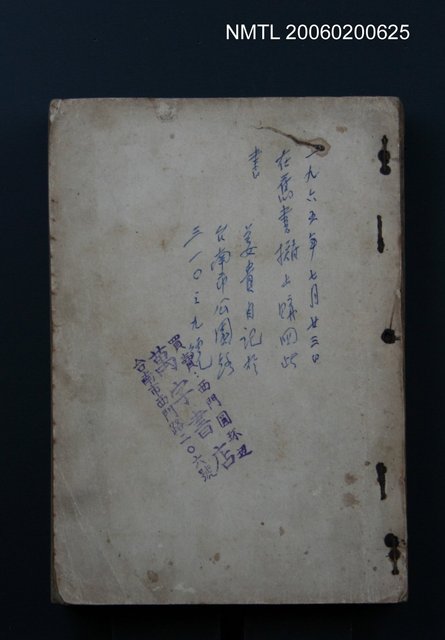 NMTL 20060200625
一九六五年七月廿三日
在舊書攤上購回此
書
姜貴自記於
台南市公園路
三一〇之九號
買賣：西門圓環边
萬字書店
台南市西門路二〇六號